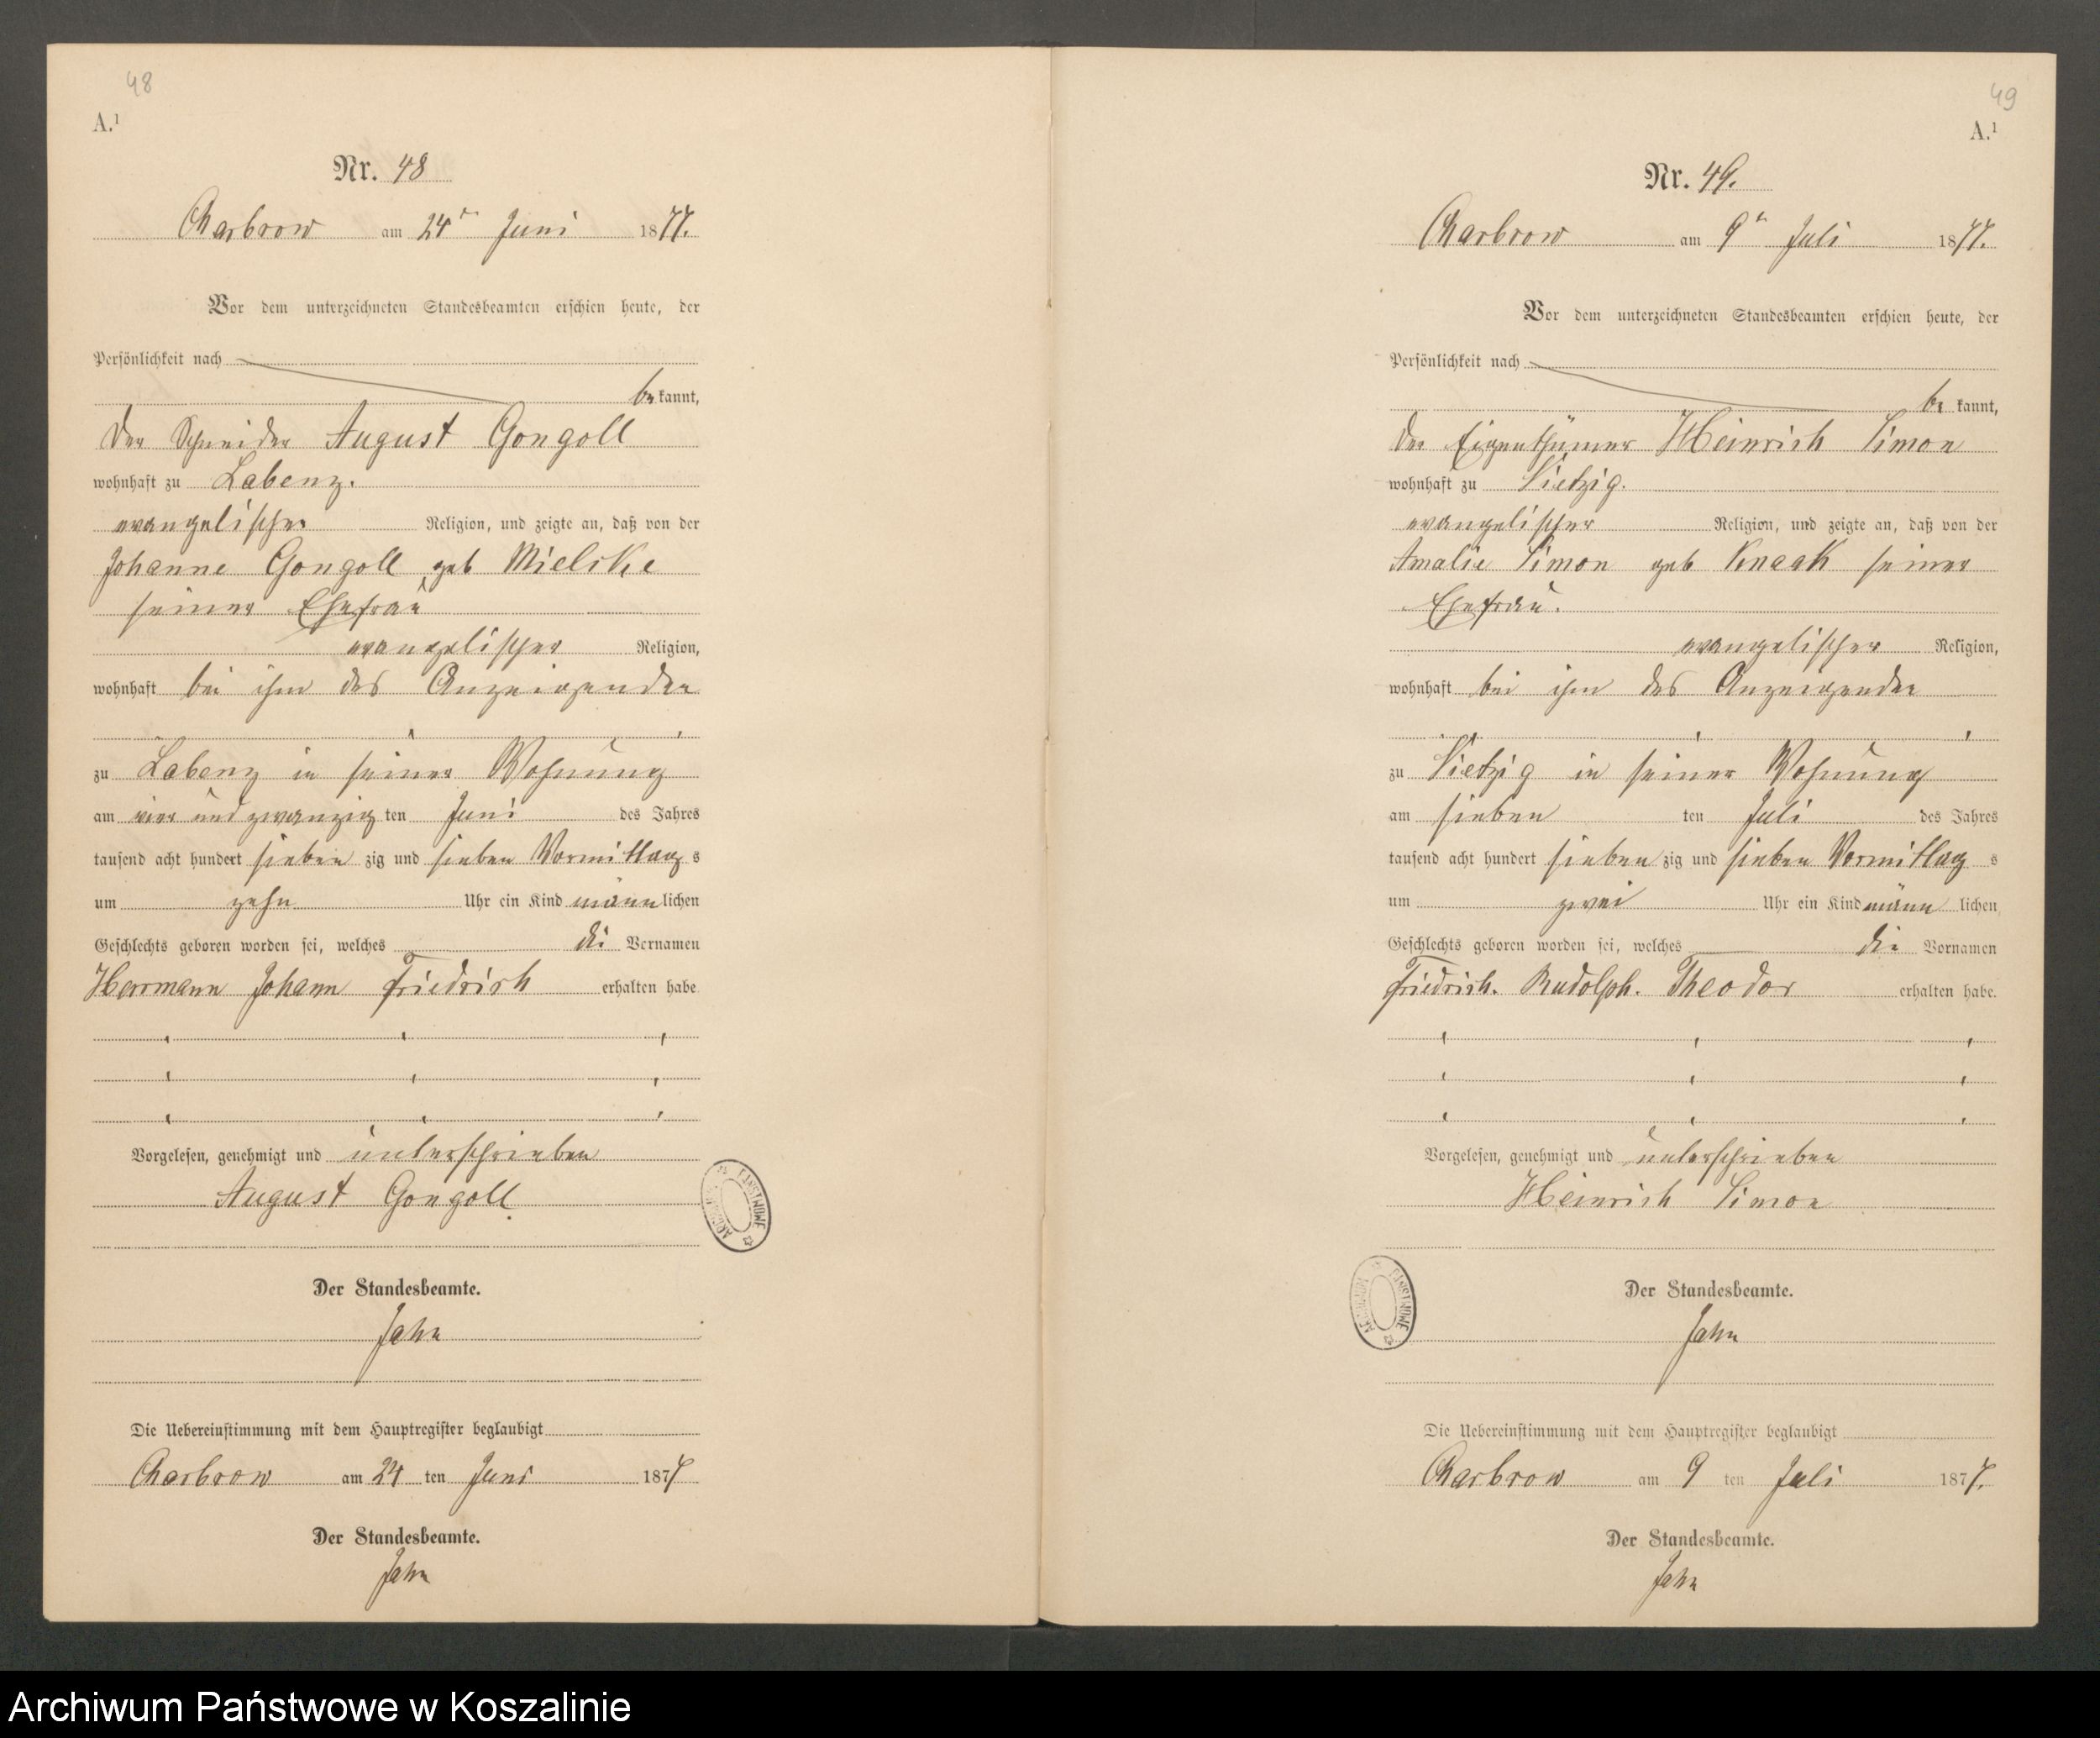 48
A.¹
Nr. 48
Charbrow am 24ᵗᵉⁿ Juni 1877.
Vor dem unterzeichneten Standesbeamten erschien heute, der
Persönlichkeit nach
be kannt,
der Schneider August Gongoll
wohnhaft zu Labenz.
evangelischer Religion, und zeigte an, daß von der
Johanne Gongoll geb Mielcke
seiner Ehefrau
evangelischer Religion,
wohnhaft bei ihm des Anzeigender
zu Labenz in seiner Wohnung
am vier und zwanzig ten Juni des Jahres
tausend acht hundert sieben zig und sieben Vormittag s
um zehn Uhr ein Kind männ lichen
Geschlechts geboren worden sei, welches die Vornamen
Herrmann Johann Friedrich erhalten habe
Vorgelesen, genehmigt und unterschrieben
August Gongoll
Der Standesbeamte.
Jahn
Die Uebereinstimmung mit dem Hauptregister beglaubigt
Charbrow am 24 ten Juni 1877
Der Standesbeamte.
Jahn
ARCHIWUM PAŃSTWOWE
49
A.¹
Nr. 49.
Charbrow am 9ᵗᵉⁿ Juli 1877.
Vor dem unterzeichneten Standesbeamten erschien heute, der
Persönlichkeit nach
be kannt,
der Eigenthümer Heinrich Simon
wohnhaft zu Vietzig.
evangelischer Religion, und zeigte an, daß von der
Amalie Simon geb Knaak seiner
Ehefrau.
evangelischer Religion,
wohnhaft bei ihm des Anzeigender
zu Vietzig in seiner Wohnung
am sieben ten Juli des Jahres
tausend acht hundert sieben zig und sieben Vormittag s
um zwei Uhr ein Kind männ lichen
Geschlechts geboren worden sei, welches die Vornamen
Friedrich. Rudolph. Theodor erhalten habe.
Vorgelesen, genehmigt und unterschrieben
Heinrich Simon
Der Standesbeamte.
Jahn
Die Uebereinstimmung mit dem Hauptregister beglaubigt
Charbrow am 9 ten Juli 1877.
Der Standesbeamte.
Jahn
ARCHIWUM PAŃSTWOWE
Archiwum Państwowe w Koszalinie